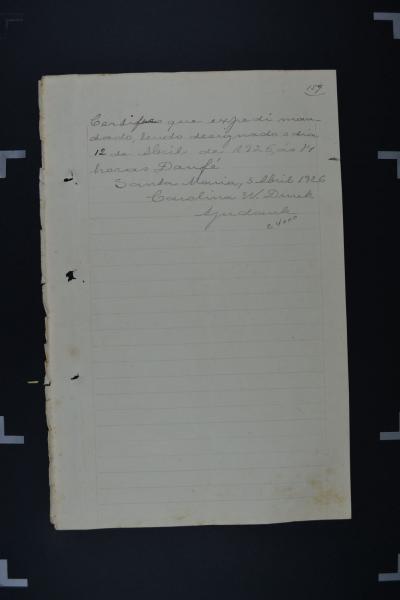 159
Certifico que expedi man
dado, tendo designado o dia
12 de Abril de 1926, ás 14
horas Dou fé
Santa Maria, 3 Abril 1926
Carolina W.
Ajudante